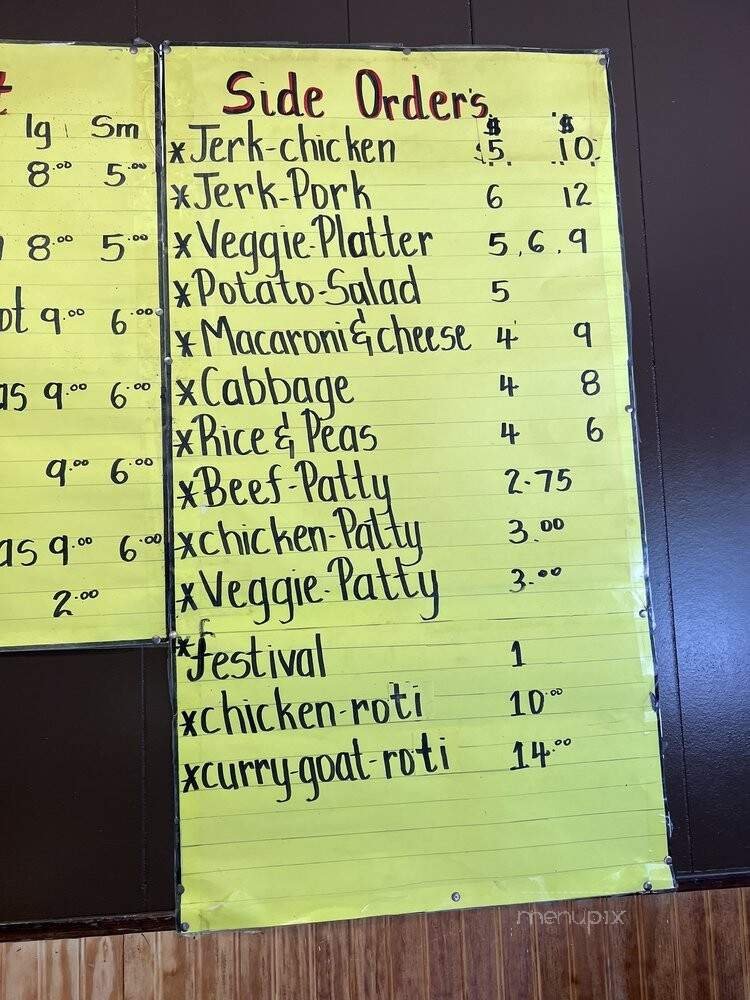 t
lg Sm
8.00 5.00
8.00 5.00
ot 9.00 6.00
as 9.00 6.00
9.00 6.00
as 9.00 6.00
2.00
Side Order's
$ $
*Jerk-chicken 5 10
*Jerk-Pork 6 12
*Veggie-Platter 5,6,9
*Potato-Salad 5
*Macaroni & cheese 4 9
*Cabbage 4 8
*Rice & Peas 4 6
*Beef-Patty 2.75
*chicken-Patty 3.00
*Veggie-Patty 3.00
*festival 1
*chicken-roti 10.00
*curry-goat-roti 14.00
menupix